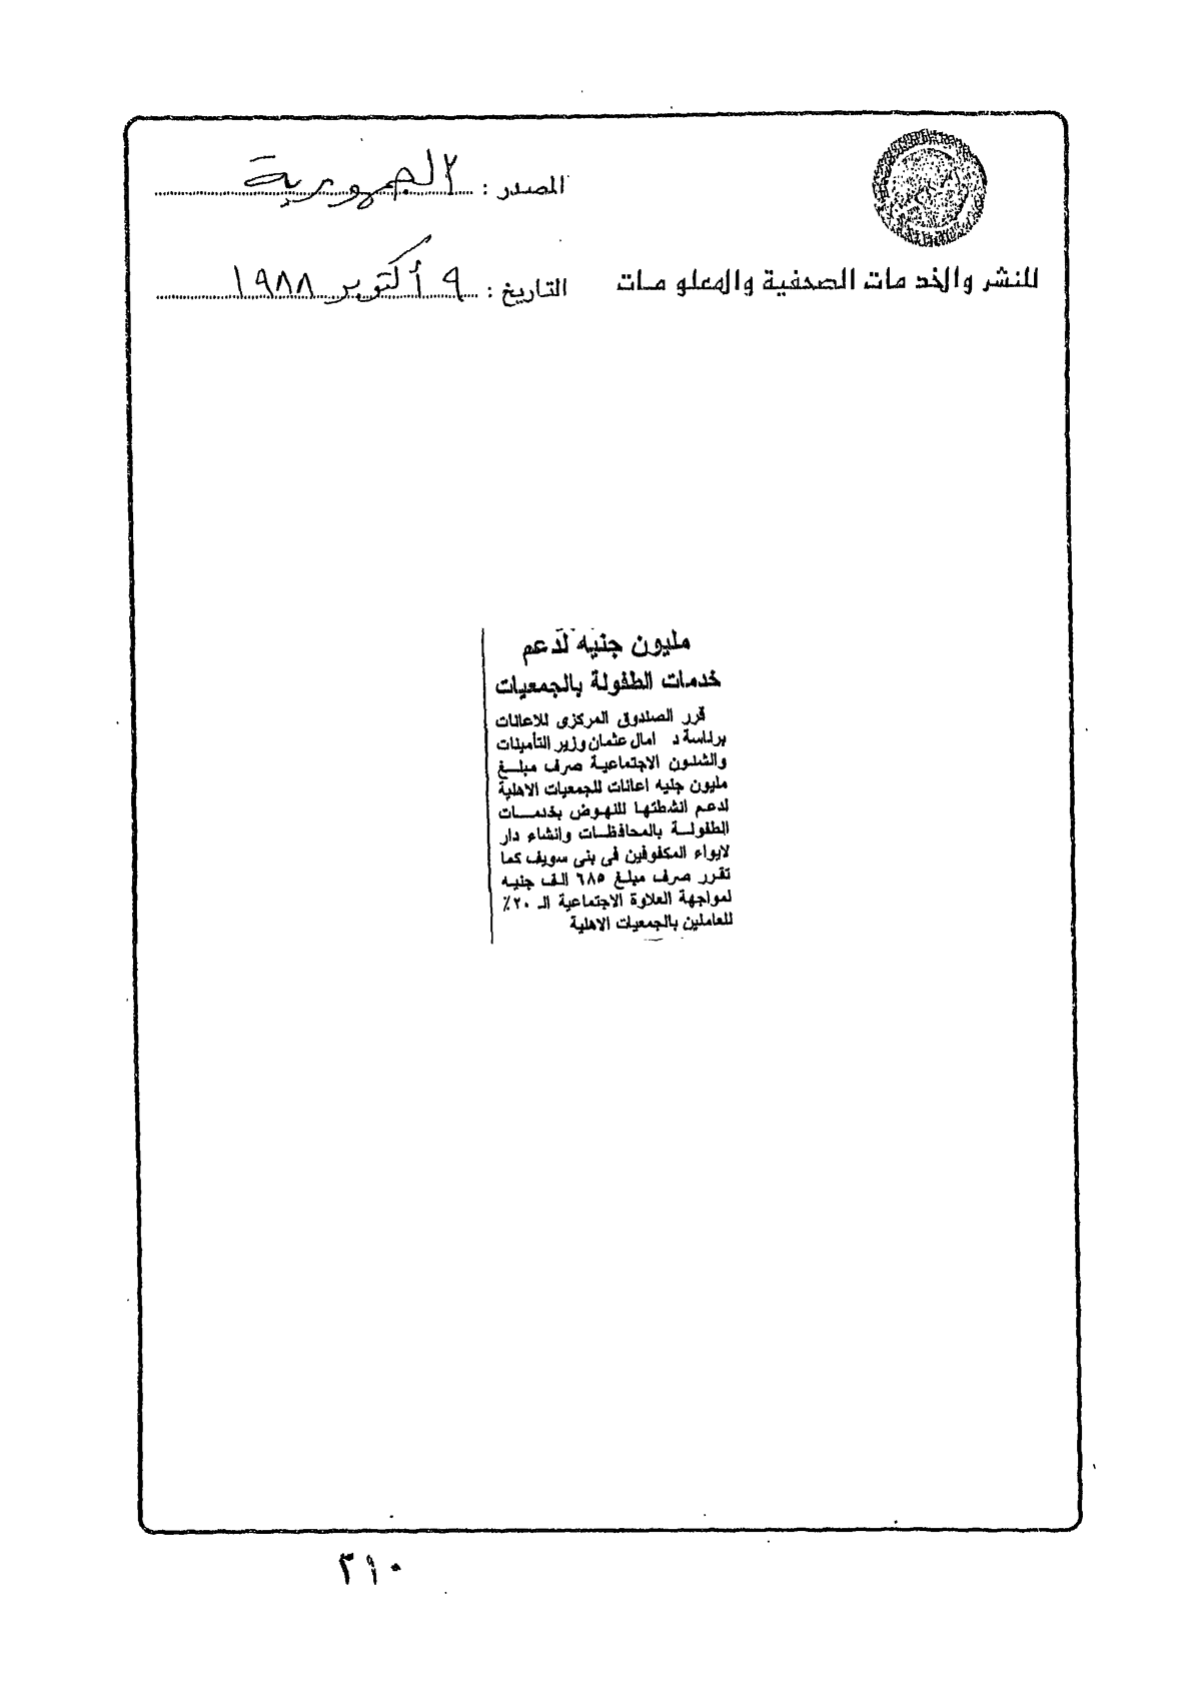 المصدر : الجمهورية
للنشر والخدمات الصحفية والمعلومات
التاريخ : ٩ أكتوبر ١٩٨٨
مليون جنيه لدعم
خدمات الطفولة بالجمعيات
قرر الصندوق المركزى للاعانات
برئاسة د امال عثمان وزير التأمينات
والشئون الاجتماعية صرف مبلغ
مليون جنيه اعانات للجمعيات الاهلية
لدعم انشطتها للنهوض بخدمات
الطفولة بالمحافظات وانشاء دار
لايواء المكفوفين فى بنى سويف كما
تقرر صرف مبلغ ٦٨٥ الف جنيه
لمواجهة العلاوة الاجتماعية الـ ٢٠٪
للعاملين بالجمعيات الاهلية
٣١٠